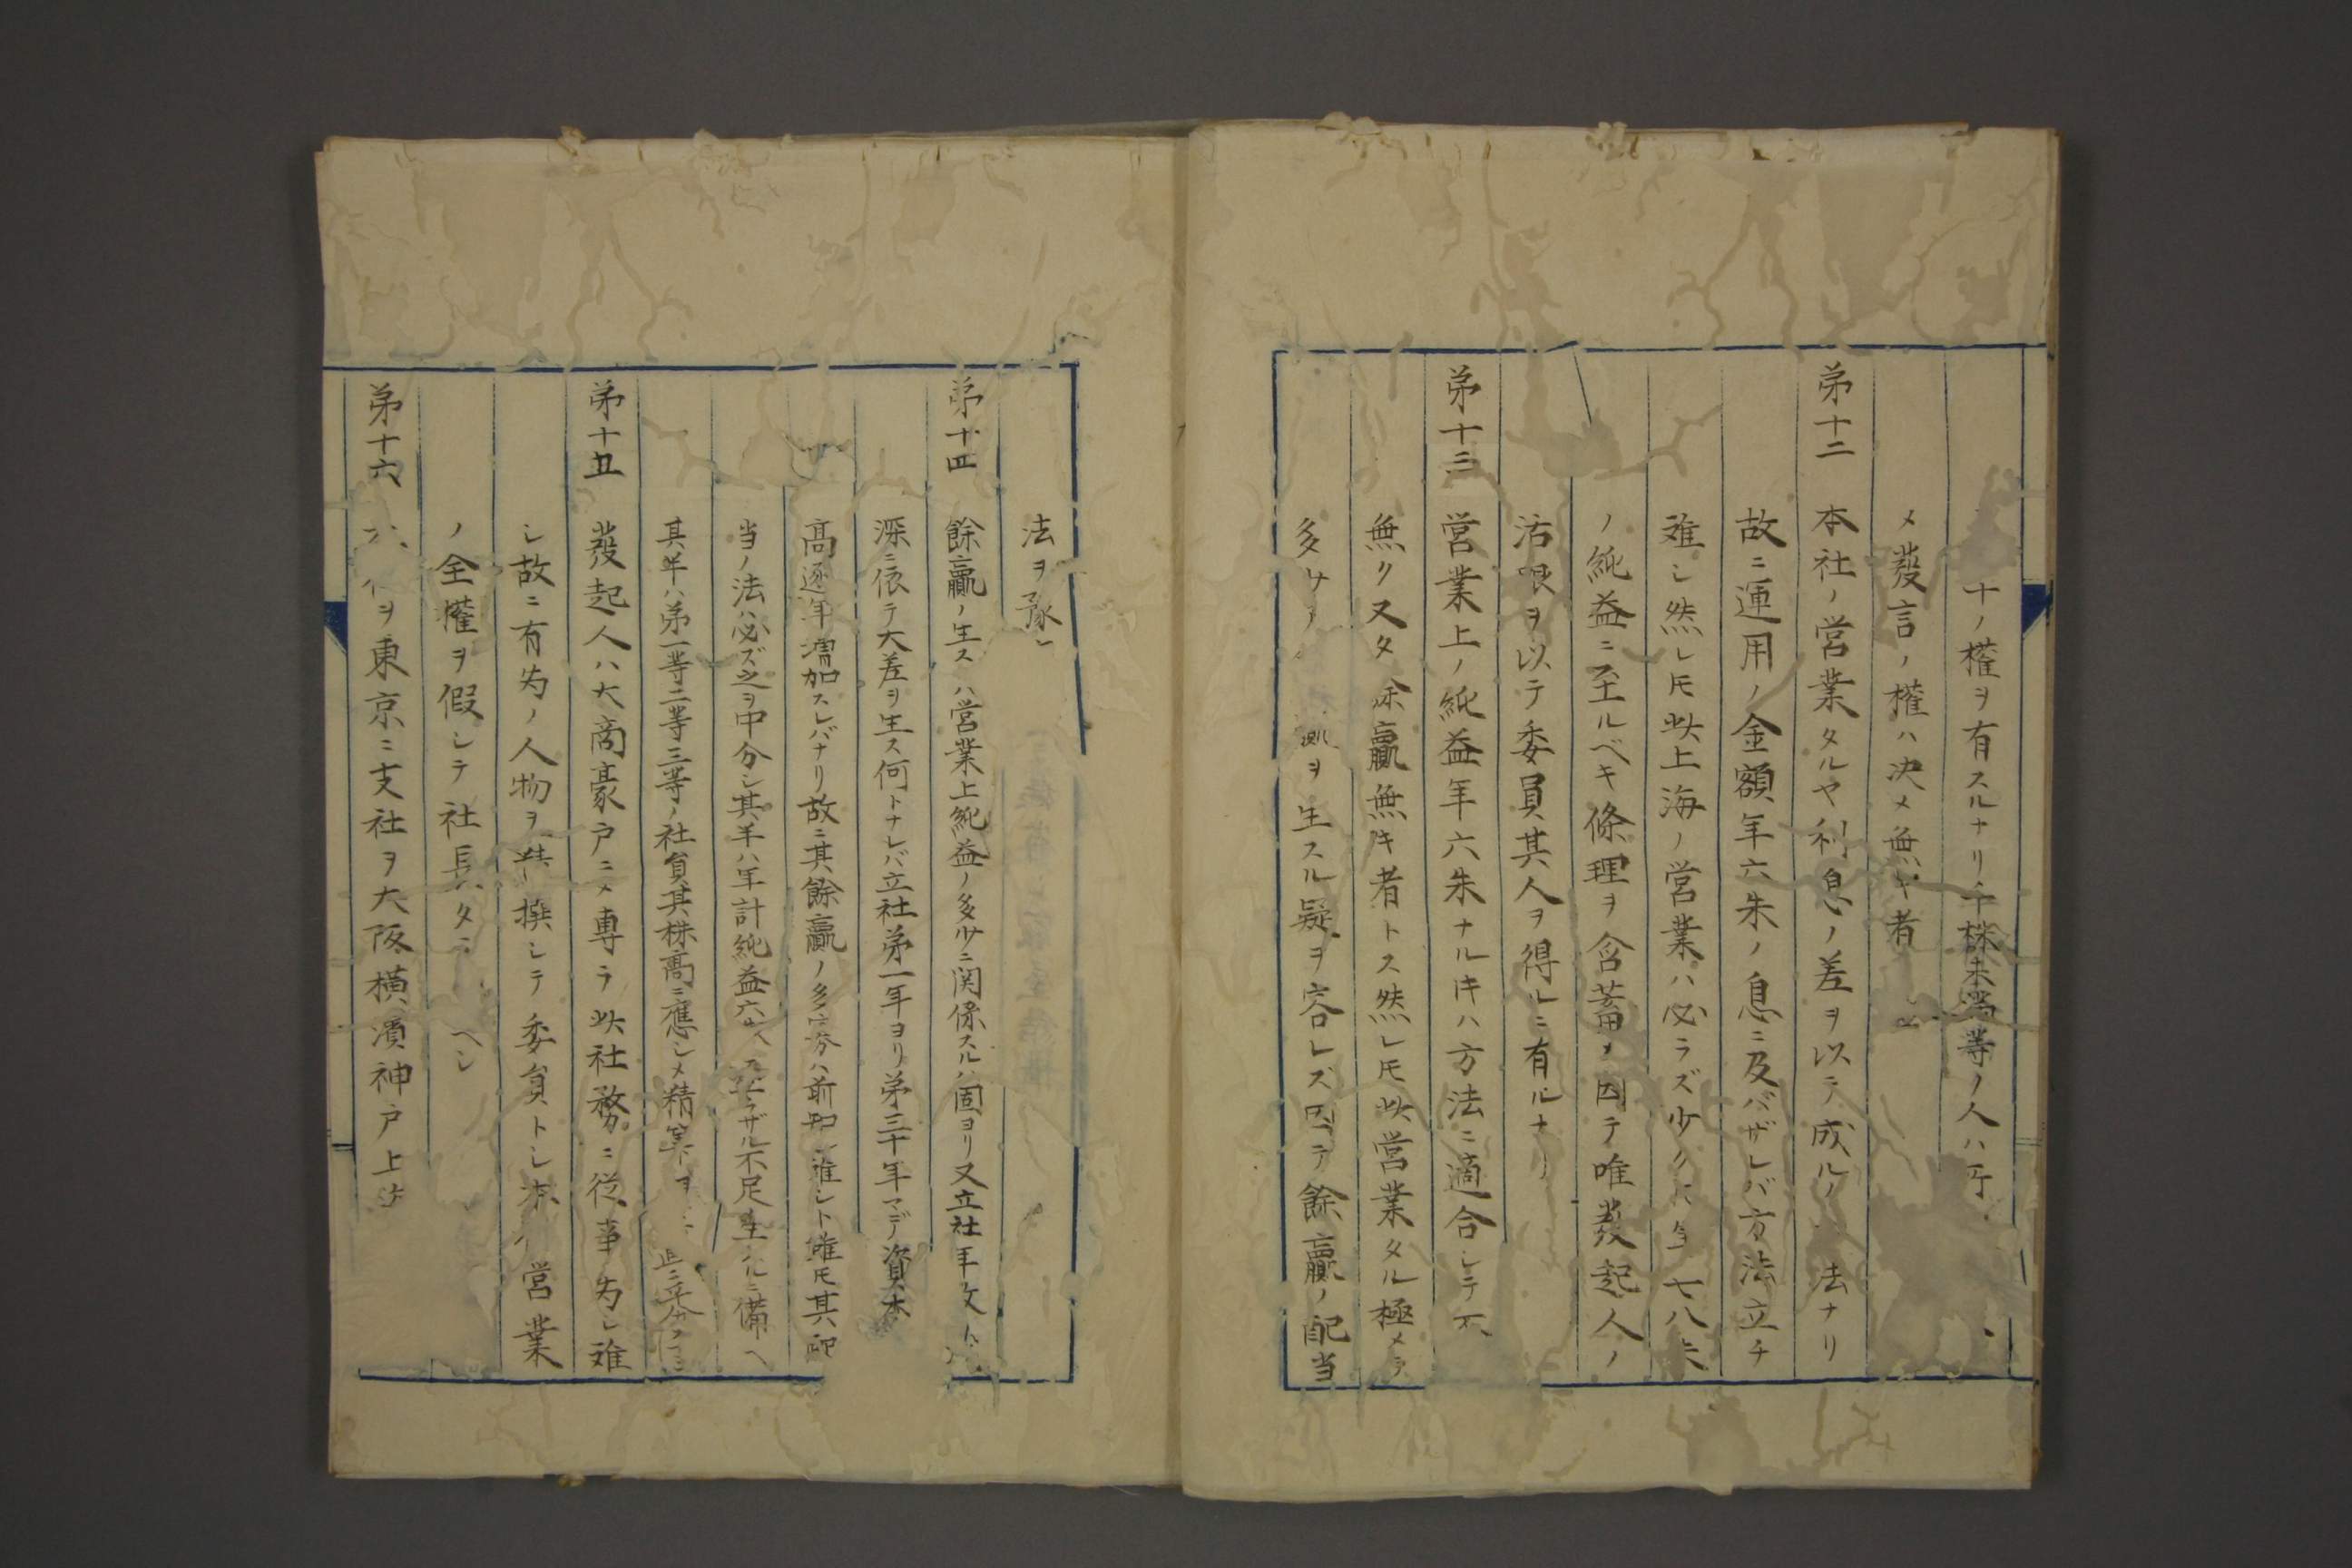 十ノ權ヲ有スルナリ千株未満等ノ人ハ
メ發言ノ權ハ決メ無キ者
弟十二 本社ノ営業タルヤ利息ノ差ヲ以テ成ルノ 法ナリ
故ニ運用ノ金額年六朱ノ息ニ及バザレバ方法立チ
難シ然レ𪜈此上海ノ営業ハ必ラズ少クモ年七八朱
ノ純益ニ至ルベキ條理ヲ含蓄メ因テ唯發起人ノ
活眼ヲ以テ委員其人ヲ得ルニ有ルナリ
弟十三 営業上ノ純益年六朱ナルキハ方法ニ適合シテ不
無ク又タ余贏無キ者トス然レ𪜈此営業タル極メテ
多 測ヲ生スル疑ヲ容レズ因テ餘贏ノ配当
法ヲ豫
弟十四 餘贏ノ生ス ハ営業上純益ノ多少ニ関係スルハ固ヨリ又立社年
深ニ依テ大差ヲ生ス何トナレバ立社弟一年ヨリ弟三十年マデ資本
高逐年増加スレバナリ故ニ其餘贏ノ多寡ハ前知シ難シト雖𪜈其配
当ノ法ハ必ズ之ヲ中分シ其半ハ年計純益六朱ニ至ラザル不足 生 ルニ備ヘ
其半ハ弟一等二等三等ノ社員其株高ニ應シメ精算
弟十五 發起人ハ大商豪戸ニメ専ラ此社務ニ従事為シ難
シ故ニ有為ノ人物ヲ精撰シテ委員トシ本 営業
ノ全權ヲ假シテ社長タラ ベシ
弟十六 ヲ東京ニ支社ヲ大阪横濱神戸上